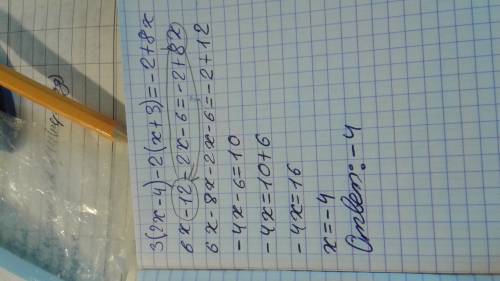 3(2x-4)-2(x+3)=-2+8x
6x-12-2x-6=-2+8x
6x-8x-2x-6=-2+12
-4x-6=10
-4x=10+6
-4x=16
x=-4
Ответ: -4